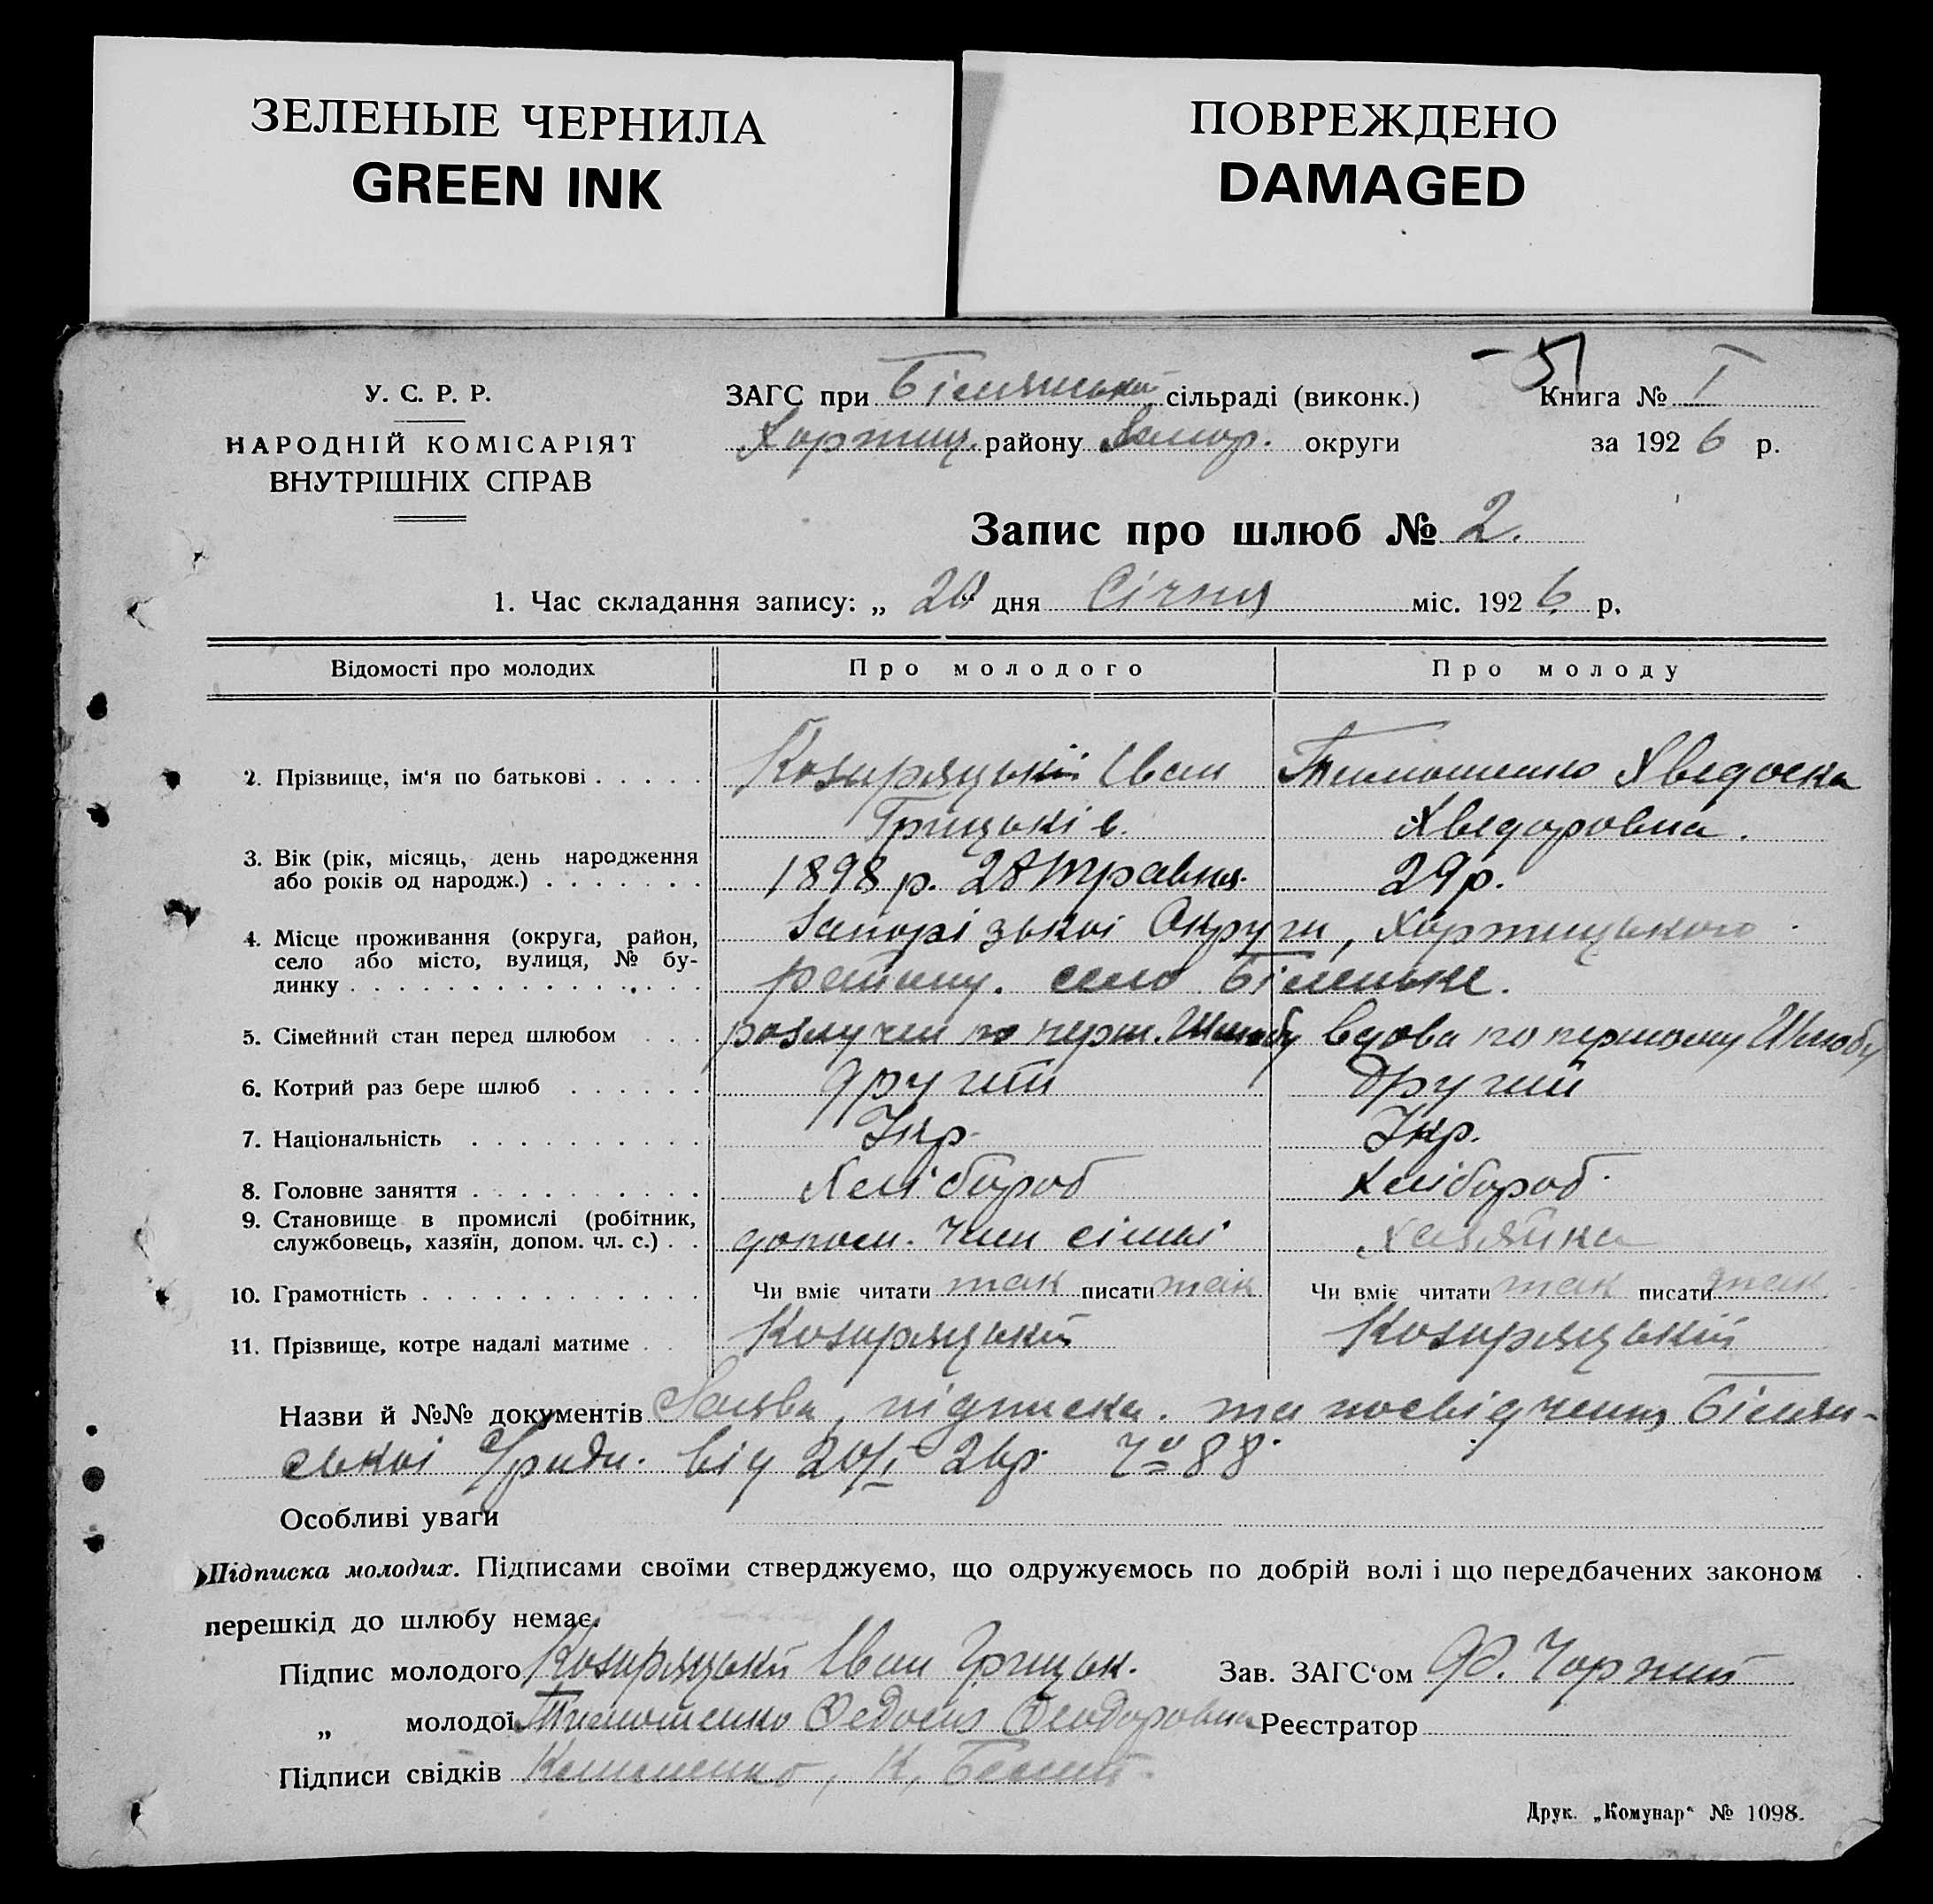 ЗЕЛЕНЫЕ ЧЕРНИЛА
GREEN INK
ПОВРЕЖДЕНО
DAMAGED
51
У. С. Р. Р.
НАРОДНІЙ КОМІСАРІЯТ
ВНУТРІШНІХ СПРАВ
ЗАГС при Біленській сільраді (виконк.) Книга № I
Хортиц. району Запор. округи за 1926 р.
Запис про шлюб № 2.
1. Час складання запису: „ 20 дня Січня міс. 1926 р.
Відомості про молодих Про молодого Про молоду
2. Прізвище, ім'я по батькові Козиряцький Іван Тимошенко Хведоска
Грицьків. Хведоровна.
3. Вік (рік, місяць, день народження
або років од народж.) 1898 р. 28 травня. 29 р.
4. Місце проживання (округа, район, Запорізької Округи, Хортицького
село або місто, вулиця, № бу-
динку району. село Біленьке.
5. Сімейний стан перед шлюбом розлучен по перш. Шлюбу вдова по першому Шлюбу
6. Котрий раз бере шлюб другий Другий
7. Національність Укр. Укр.
8. Головне заняття Хлібороб Хлібороб.
9. Становище в промислі (робітник,
службовець, хазяїн, допом. чл. с.) допом. член сімьї Хазяйка
10. Грамотність Чи вміє читати так писати так Чи вміє читати так писати так
11. Прізвище, котре надалі матиме Козиряцький Козиряцький
Назви й №№ документів Заява, підписка. та посвідчення Білен-
ської С/ради. від 20/I 26р. № 88.
Особливі уваги
Підписка молодих. Підписами своїми стверджуємо, що одружуємось по добрій волі і що передбачених законом
перешкід до шлюбу немає.
Підпис молодого Козиряцький Іван Грицьк. Зав. ЗАГС'ом
„ молодої Тимошенко Федосия Феодоровна Реєстратор
Підписи свідків
Друк. „Комунар“ № 1098.